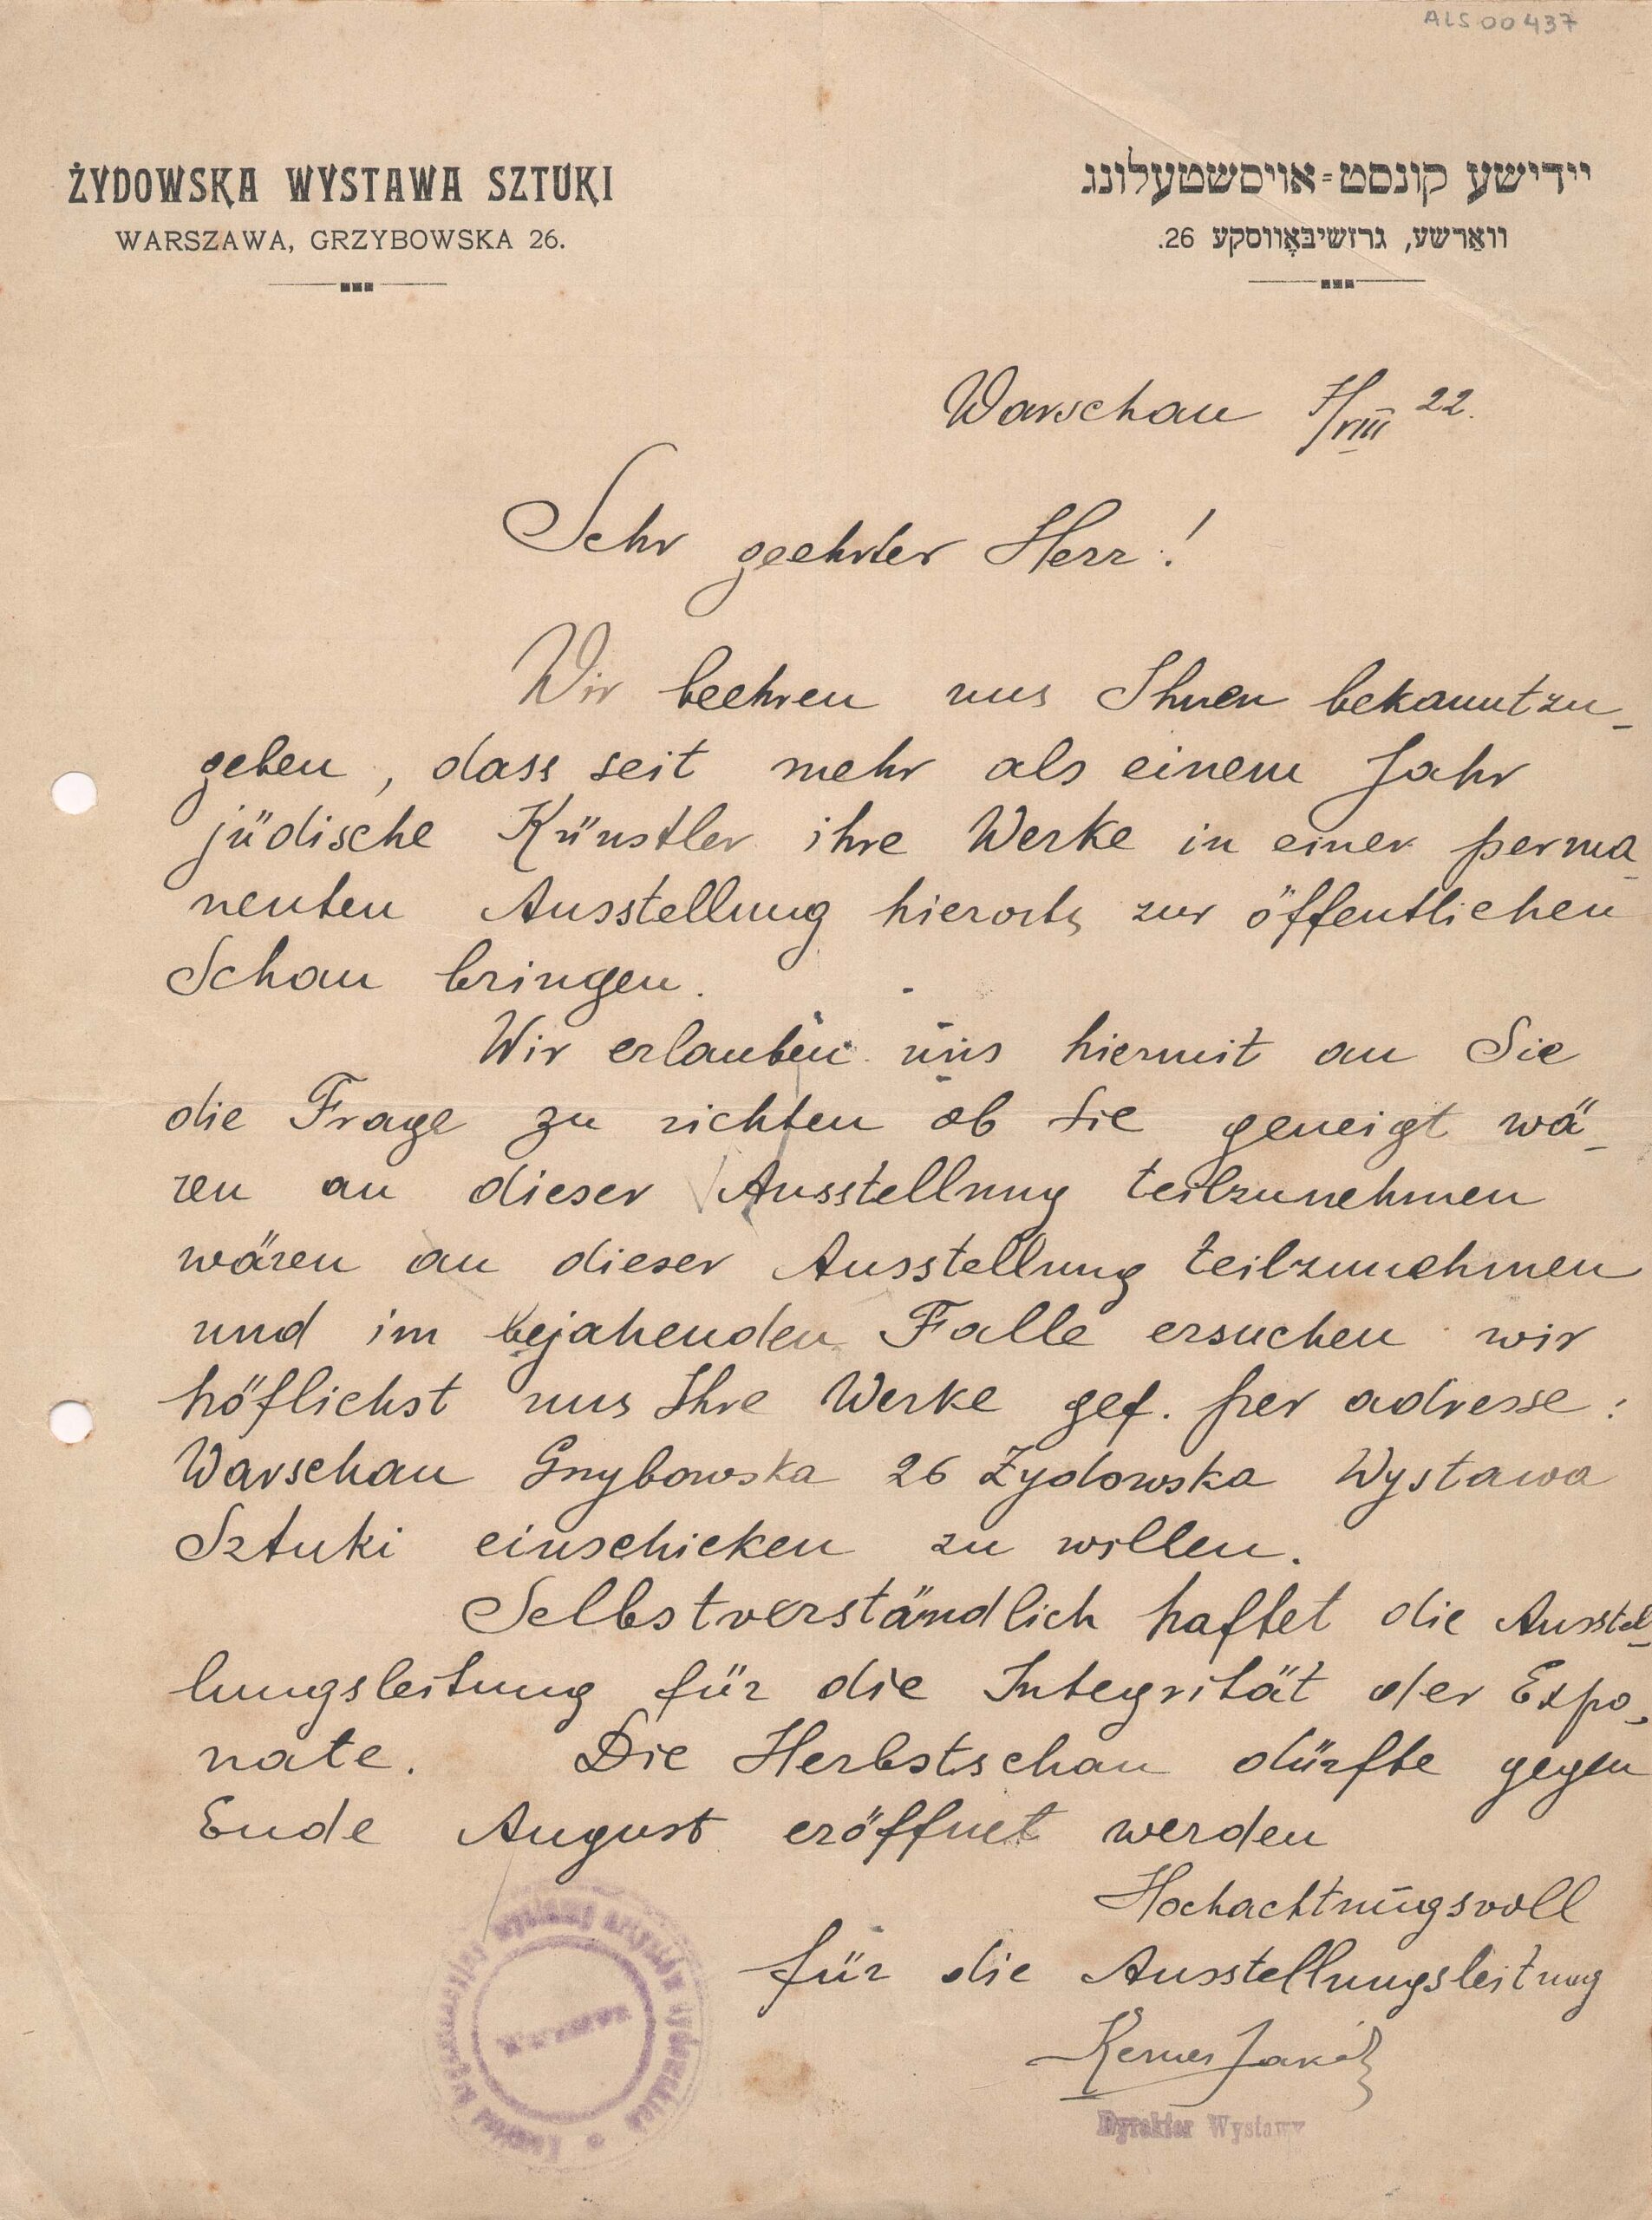 ALS 00437
ŻYDOWSKA WYSTAWA SZTUKI
WARSZAWA, GRZYBOWSKA 26.
יידישע קונסט=אויסשטעלונג
וואַרשע, גרזשיבּאָווסקע 26.
Warschau 7/VIII 22.
Sehr geehrter Herr!
Wir beehren uns Ihnen bekanntzu-
geben, dass seit mehr als einem Jahr
jüdische Künstler ihre Werke in einer perma-
nenten Ausstellung hierorts zur öffentlichen
Schau bringen.
Wir erlauben uns hiermit an Sie
die Frage zu richten ob Sie geneigt wä-
ren an dieser Ausstellung teilzunehmen
wären an dieser Ausstellung teilzunehmen
und im bejahenden Falle ersuchen wir
höflichst uns Ihre Werke gef. per adresse:
Warschau Grzybowska 26 Żydowska Wystawa
Sztuki einschicken zu wollen.
Selbstverständlich haftet die Ausstel-
lungsleitung für die Integrität der Expo-
nate. Die Herbstschau dürfte gegen
Ende August eröffnet werden
Hochachtungsvoll
für die Ausstellungsleitung
Dyrektor Wystawy
Wystawy Artystów Żydowskich
Warszawa